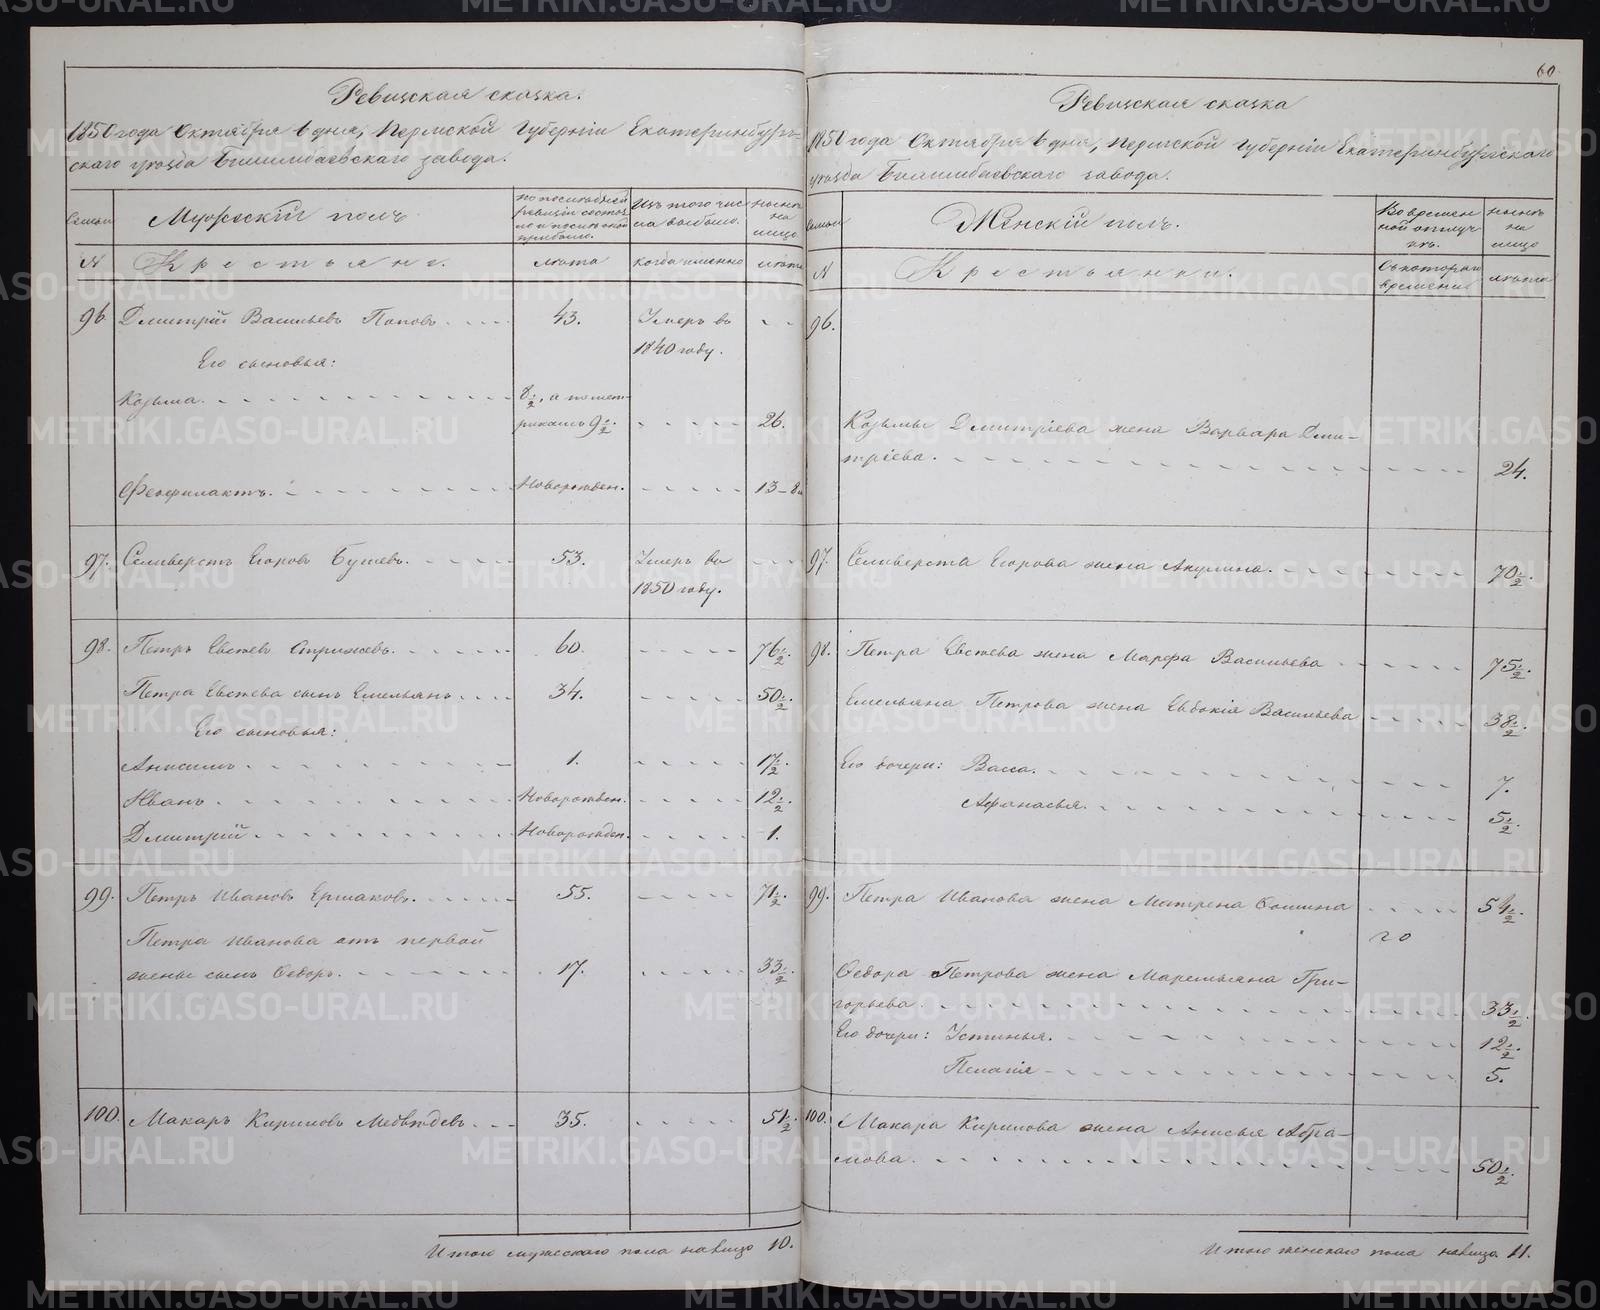 Ревизская сказка.
1850 года Октября 6 дня, Пермской Губерніи Екатеринбург-
скаго уѣзда Билимбаевскаго завода.
Семьи
Мужескій полъ
по послѣдней ревизіи состояло и после оной прибыло.
Изъ того числа выбыло.
нынѣ на лицо
№
Крестьяне.
лѣта
когда именно
лѣта
96. Дмитрій Васильевъ Поповъ 43. Умеръ въ
1840 году.
Его сыновья:
Козьма 8½, а по мет-
рикамъ 9½. 26.
Феофилактъ. Новорожден. 13-8м
97. Селиверстъ Егоровъ Бушевъ. 53. Умеръ въ
1850 году.
98. Петръ Евстевъ Стрижевъ. 60. 76½.
Петра Евстева сынъ Емельянъ 34. 50½.
Его сыновья:
Анисимъ 1. 17½.
Иванъ Новорожден. 12½.
Дмитрій Новорожден. 1.
99. Петръ Ивановъ Ершаковъ. 55. 71½.
Петра Иванова отъ первой
жены сынъ Ѳедоръ. 17. 33½.
100. Макаръ Кириловъ Медвѣдевъ. 35. 51½.
Итого мужескаго пола налицо 10.
60.
Ревизская сказка
1850 года Октября 6 дня, Пермской Губерніи Екатеринбургскаго
уѣзда Билимбаевскаго завода.
Семьи
Женскій полъ.
Во временной отлучкѣ.
нынѣ на лицо
№
Крестьянки.
Съ котораго времени
лѣта
96.
Козьмы Дмитріева жена Варвара Дми-
тріева. 24.
97. Селиверста Егорова жена Акулина. 70½.
98. Петра Евстева жена Марфа Васильева 75½.
Емельяна Петрова жена Евдокія Васильева 38½.
Его дочери: Васса. 7.
Афанасья. 5½.
99. Петра Иванова жена Матрена Фомина 54½.
го
Ѳедора Петрова жена Маремьяна Гри-
горьева 33½.
Его дочери: Устинья. 12½.
Пелагія 5.
100. Макара Кирилова жена Анисья Абра-
мова. 50½.
Итого женскаго пола налицо 11.
METRIKI.GASO-URAL.RU